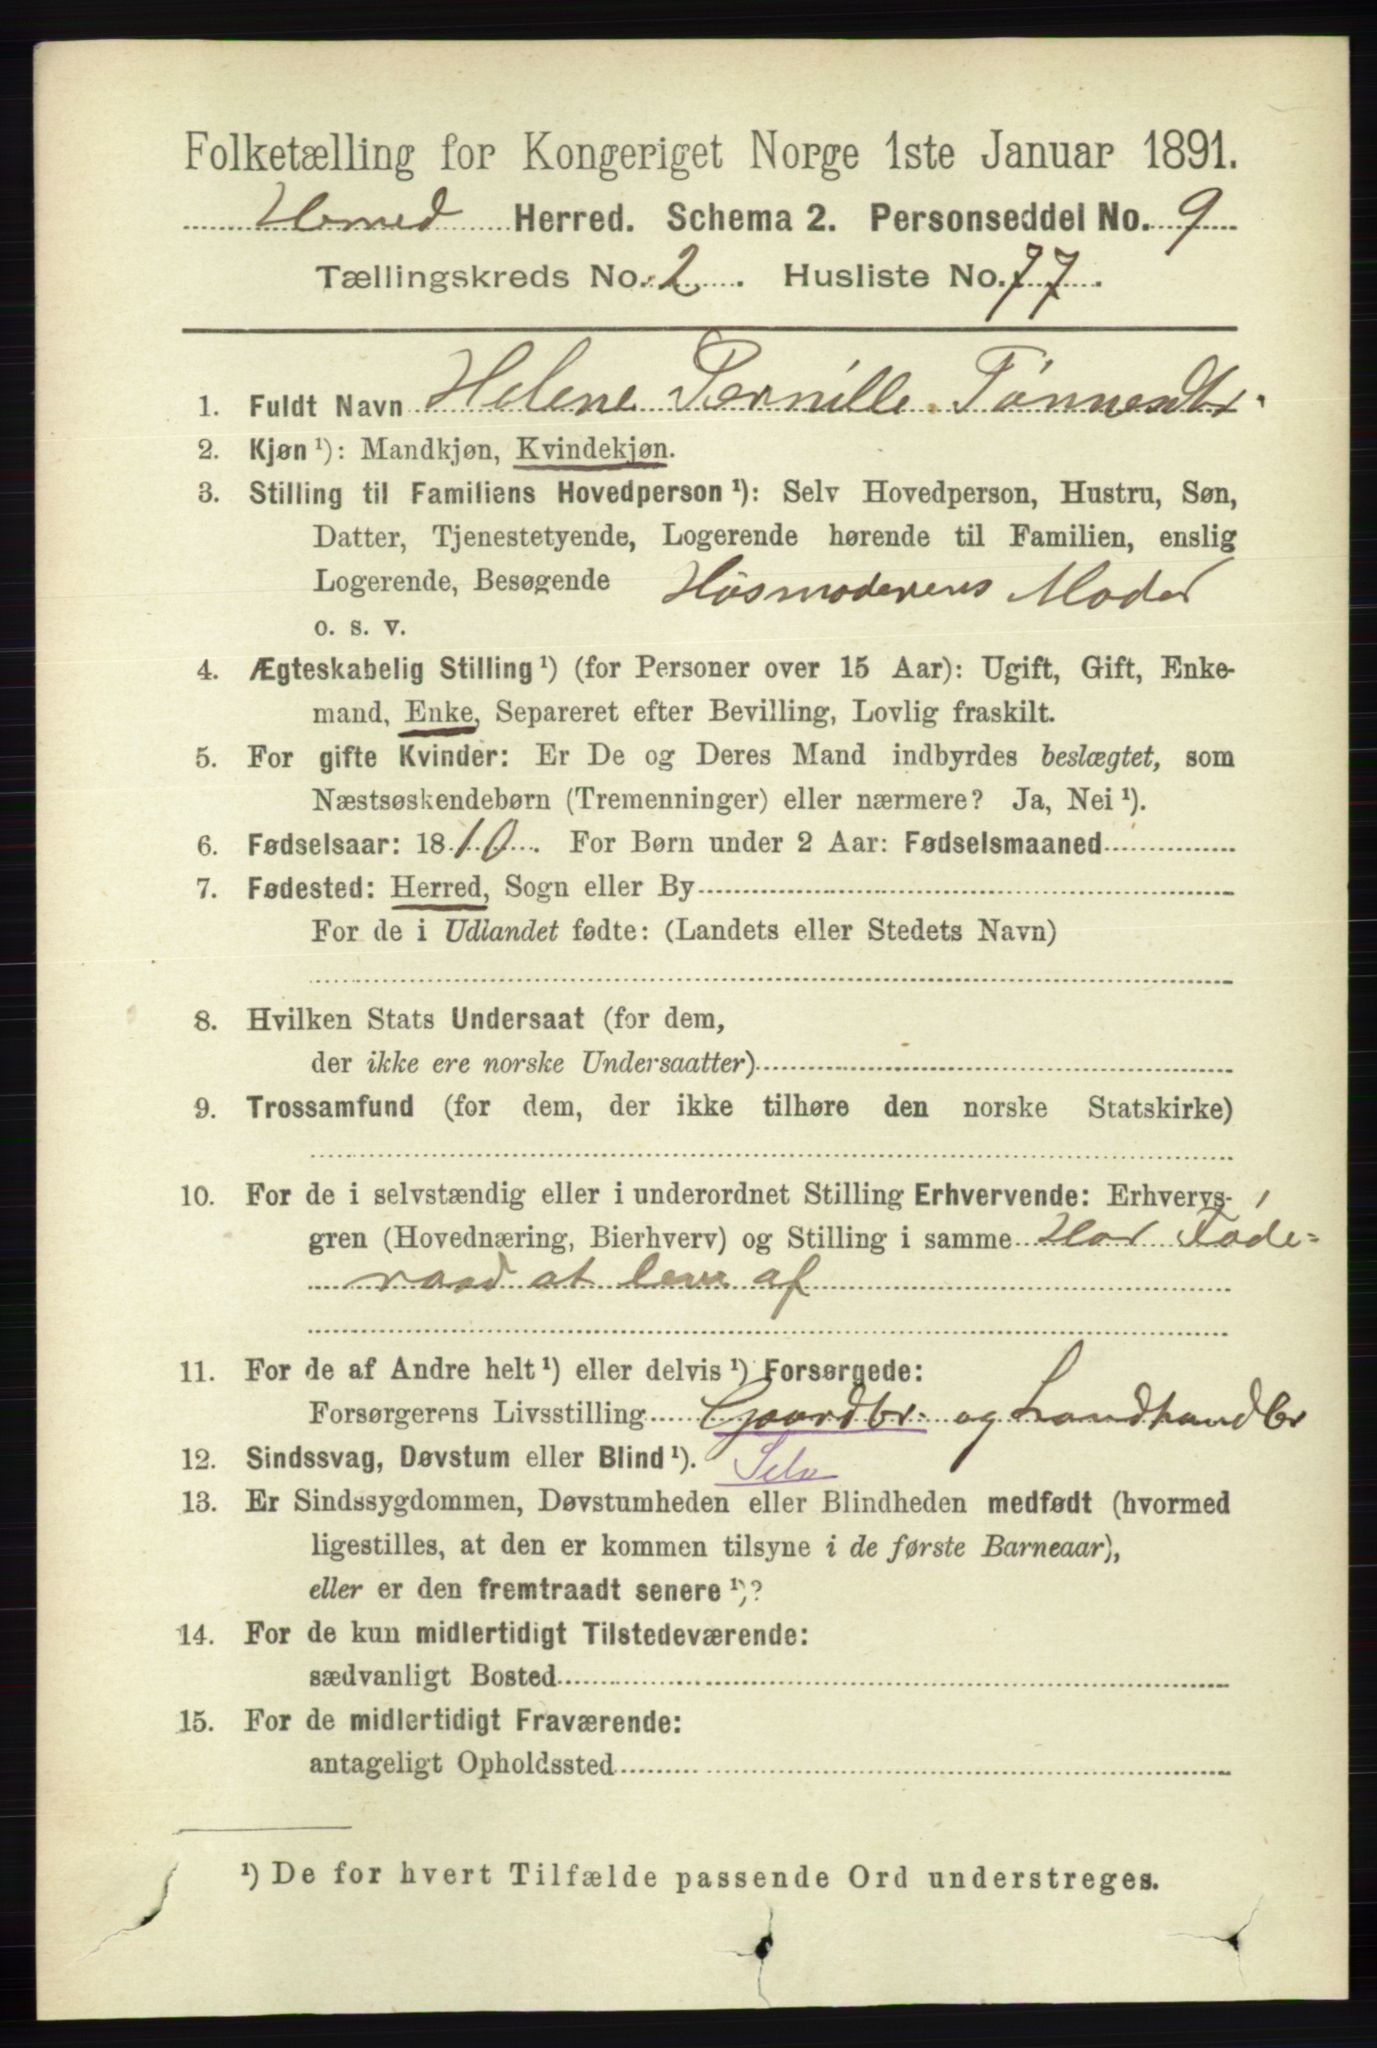 Folketælling for Kongeriget Norge 1ste Januar 1891.
Herred. Schema 2. Personseddel No. 9
Tællingskreds No. 2. Husliste No. 77.
1. Fuldt Navn Helene Pernille Tønnesdtr.
2. Kjøn ¹): Mandkjøn, Kvindekjøn.
3. Stilling til Familiens Hovedperson ¹): Selv Hovedperson, Hustru, Søn,
Datter, Tjenestetyende, Logerende hørende til Familien, enslig
Logerende, Besøgende Husmoderens Moder
o. s. v.
4. Ægteskabelig Stilling ¹) (for Personer over 15 Aar): Ugift, Gift, Enke-
mand, Enke, Separeret efter Bevilling, Lovlig fraskilt.
5. For gifte Kvinder: Er De og Deres Mand indbyrdes beslægtet, som
Næstsøskendebørn (Tremenninger) eller nærmere? Ja, Nei ¹).
6. Fødselsaar: 1810. For Børn under 2 Aar: Fødselsmaaned
7. Fødested: Herred, Sogn eller By
For de i Udlandet fødte: (Landets eller Stedets Navn)
8. Hvilken Stats Undersaat (for dem,
der ikke ere norske Undersaatter)
9. Trossamfund (for dem, der ikke tilhøre den norske Statskirke)
10. For de i selvstændig eller i underordnet Stilling Erhvervende: Erhvervs-
gren (Hovednæring, Bierhverv) og Stilling i samme Har Føde-
raad at leve af
11. For de af Andre helt ¹) eller delvis ¹) Forsørgede:
Forsørgerens Livsstilling Gaardbr. og Landhandler
12. Sindssvag, Døvstum eller Blind ¹). Selv
13. Er Sindssygdommen, Døvstumheden eller Blindheden medfødt (hvormed
ligestilles, at den er kommen tilsyne i de første Barneaar),
eller er den fremtraadt senere ¹)?
14. For de kun midlertidigt Tilstedeværende:
sædvanligt Bosted
15. For de midlertidigt Fraværende:
antageligt Opholdssted
¹) De for hvert Tilfælde passende Ord understreges.